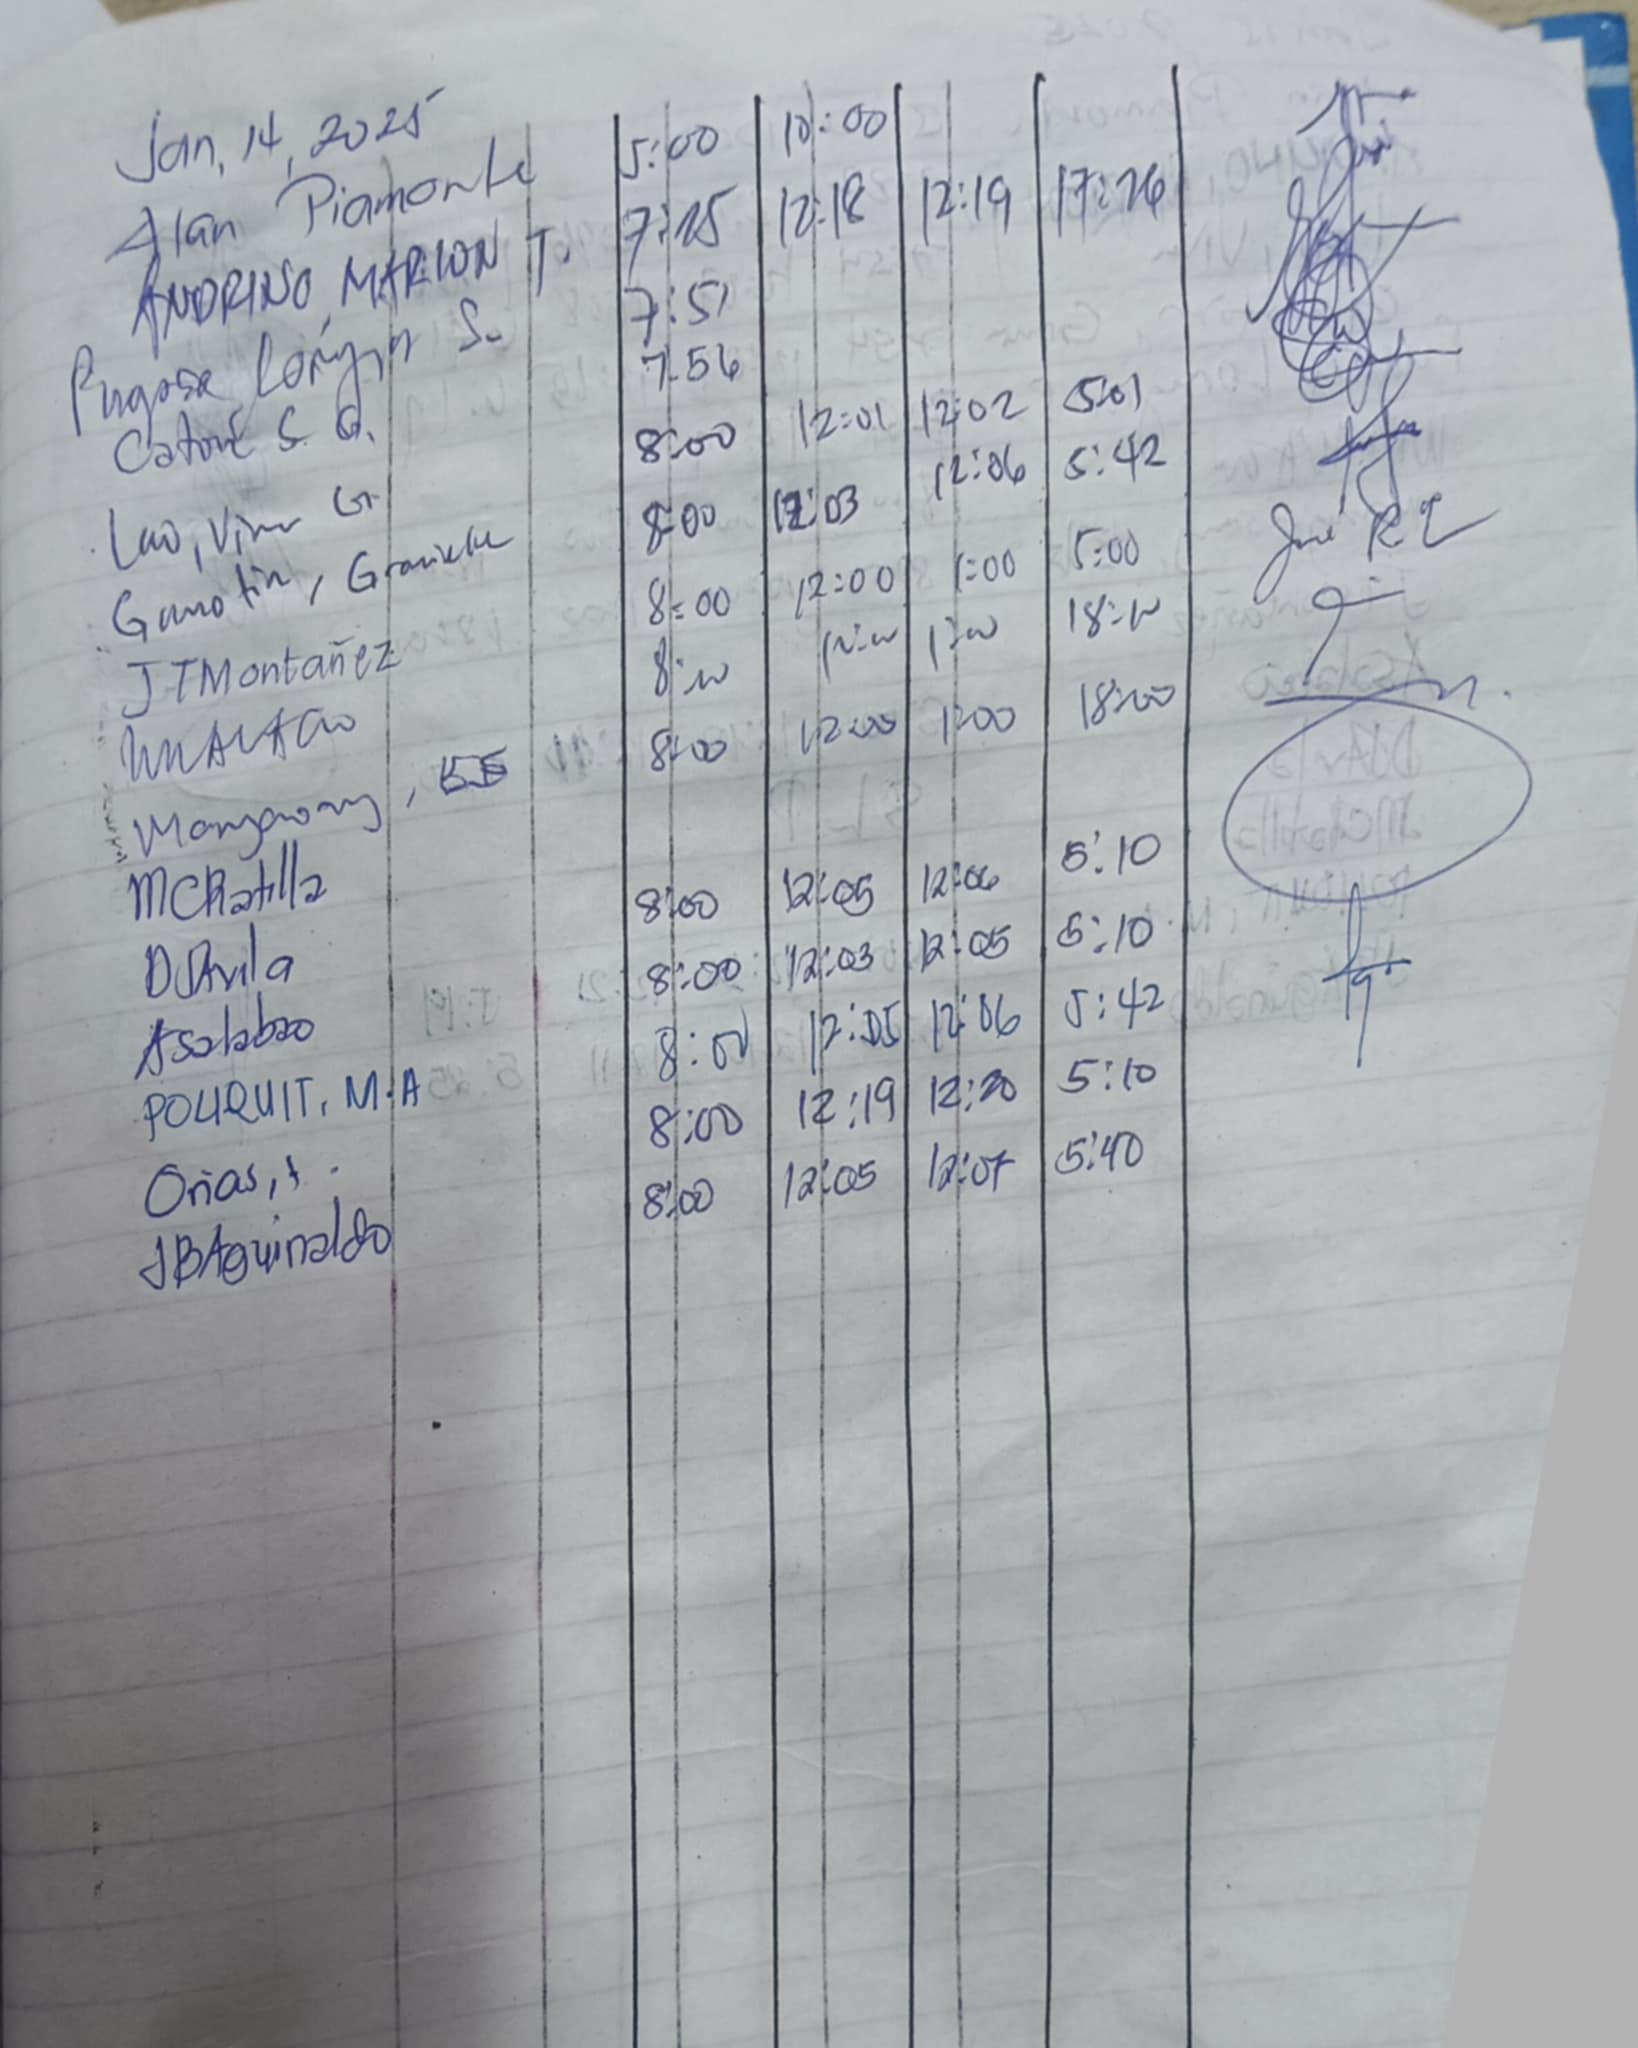 Jan, 14, 2025
Alan Piamonte 5:00 10:00
ANDRINO, MARLON T. 7:25 12:18 12:19 17:26
S. 7:51
S. G. 7:56
Lao, G. 8:00 12:01 12:02 5:01
Gamotin, 8:00 12:03 12:06 5:42
JTMontañez 8:00 12:00 1:00 5:00
8:00 12:00 1:00 18:00
8:00 12:00 1:00 18:00
MCRatilla
DJAvila 8:00 12:05 12:06 5:10
Asalabao 8:00 12:03 12:05 5:10
POUQUIT, M.A 8:00 12:05 12:06 5:42
Orias, J. 8:00 12:19 12:20 5:10
JBAguinaldo 8:00 12:05 12:07 5:40